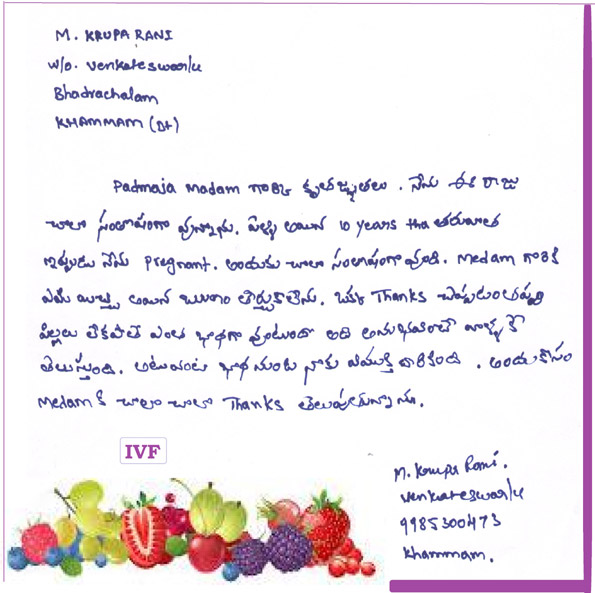 M. KRUPA RANI
W/o. Venkateswarlu
Bhadrachalam
KHAMMAM (Dt)
Padmaja Madam గారికి కృతజ్ఞతలు. నేను ఈ రోజు
చాలా సంతోషంగా వున్నాను. పెళ్ళి అయిన 10 years తరువాత
ఇప్పుడు నేను Pregnant. అందుకు చాలా సంతోషంగా వుంది. Medam గారికి
ఏమి ఇచ్చి అయిన ఋణం తీర్చుకోలేను. ఒక్క Thanks చెప్పడం తప్ప
పిల్లలు లేకపోతే ఎంత భాధగా వుంటుందో అది అనుభవించే వాళ్ళకే
తెలుస్తుంది. అటువంటి భాధ నుండి నాకు విముక్తి దొరికింది. అందుకోసం
Medam కి చాలా చాలా Thanks తెలుపుకున్నాను.
IVF
M. Krupa Rani.
Venkateswarlu
9985300473
Khammam.